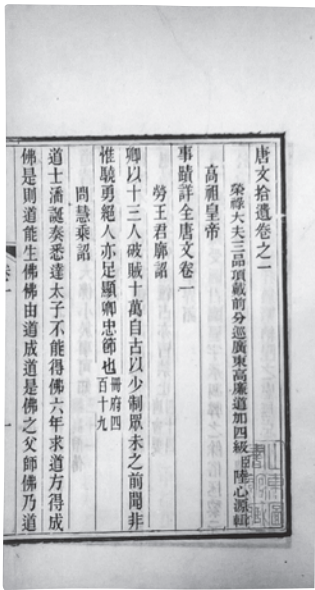 唐文拾遺卷之一
榮祿大夫三品頂戴前分巡廣東高廉道加四級臣陸心源輯
高祖皇帝
事蹟詳全唐文卷一
勞王君廓詔
卿以十三人破賊十萬自古以少制眾未之前聞非
惟驍勇絕人亦足顯卿忠節也冊府四百十九
問慧乘詔
道士潘誕奏悉達太子不能得佛六年求道方得成
佛是則道能生佛佛由道成道是佛之父師佛乃道